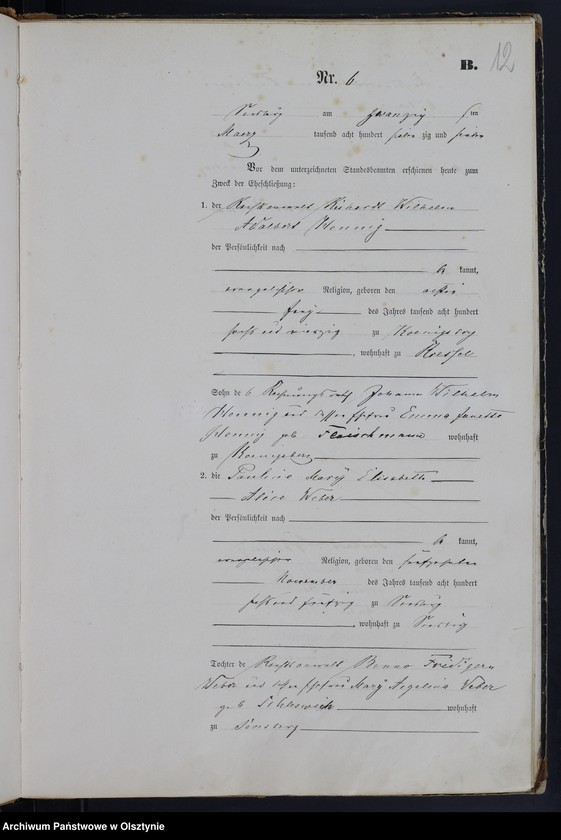 B. 12
Nr. 6
am zwanzig sten
Maerz tausend acht hundert sieben zig und sieben
Vor dem unterzeichneten Standesbeamten erschienen heute zum
Zweck der Eheschließung:
1. der Rechtsanwalt Wilhelm
Adalbert Hennig
der Persönlichkeit nach
be kannt,
evangelischer Religion, geboren den
des Jahres tausend acht hundert
sechs und vierzig zu Koenigsberg
, wohnhaft zu Roessel
Sohn des Rechnungsrath Johann Wilhelm
Hennig und dessen Ehefrau Emma
Hennig geb. Fleischmann wohnhaft
zu Koenigsberg
2. die Pauline Mary Elisabeth
Alice Weber
der Persönlichkeit nach
be kannt,
evangelischer Religion, geboren den fünfzehnten
November des Jahres tausend acht hundert
und fünfzig zu
, wohnhaft zu
Tochter des Rechtsanwalt Benno Fridigern
Weber und dessen Ehefrau Mary Angelica Weber
geb. wohnhaft
zu
Archiwum Państwowe w Olsztynie